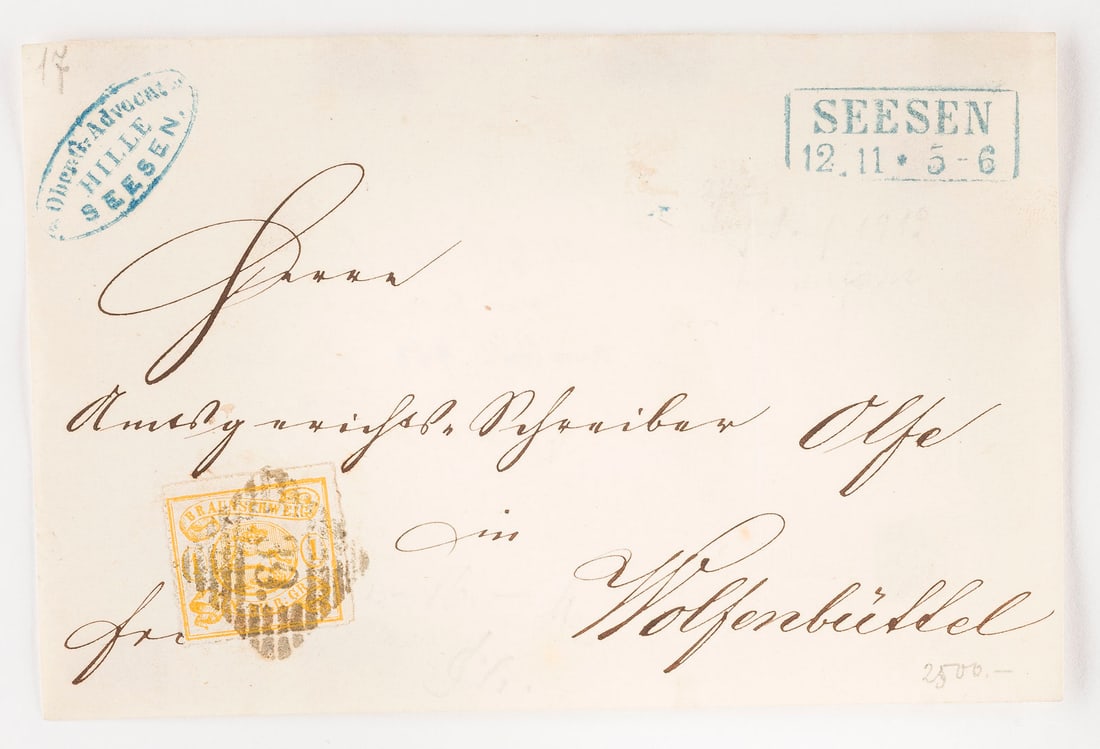 17
Oberg. Advocat
HILLE
SEESEN.
SEESEN
12. 11 * 5-6
Herrn
Amtsgerichts-Schreiber Olfe
in
Wolfenbüttel
BRAUNSCHWEIG
1
38
2500.-